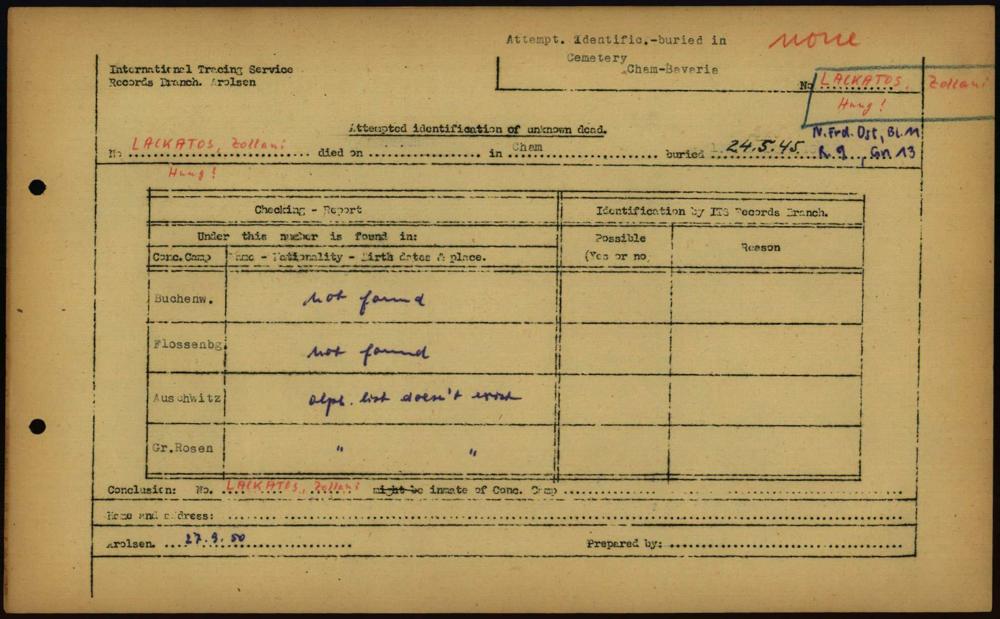 Attempt. Identific.-buried in
none
Cemetery
Cham-Bavaria
International Tracing Service
Records Branch. Arolsen
No LACKATOS, Zollani
Hung!
Attempted identification of unknown dead.
N. Frd. Ost, Bl. M
No LACKATOS, Zollani died on .......... in Cham buried 24.5.45 R. 9, Gn 13
Hung!
Checking - Report
Identification by ITS Records Branch.
Under this number is found in:
Possible
(Yes or no)
Reason
Conc.Camp Name - Nationality - Birth dates & place.
Buchenw. not found
Flossenbg. not found
Auschwitz alph. list doesn't exist
Gr.Rosen " "
Conclusion: No. LACKATOS, Zollani might be inmate of Conc. Camp ..........
Home and address: ..........
Arolsen. 27.9.50 Prepared by: ..........